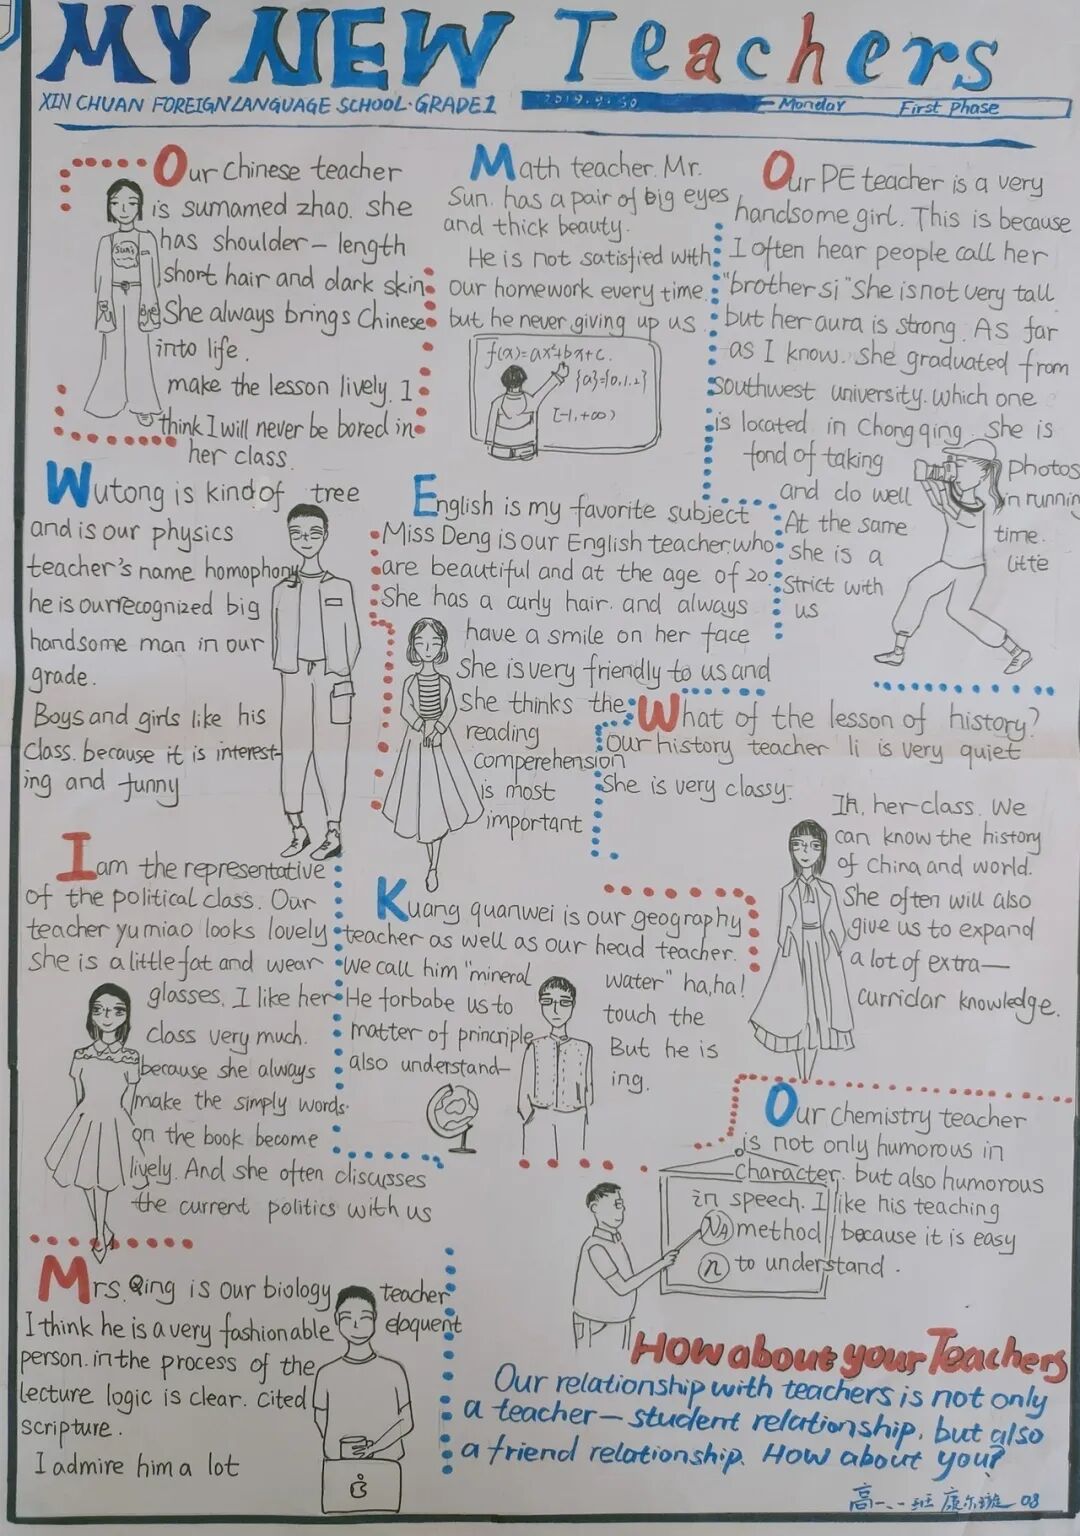 MY NEW Teachers
XIN CHUAN FOREIGN LANGUAGE SCHOOL·GRADE1
2019.9.30 Monday First Phase
Our Chinese teacher
is surnamed zhao. she
has shoulder-length
short hair and dark skin
She always brings Chinese
into life.
make the lesson lively. I
think I will never be bored in
her class.
SUNS
Math teacher. Mr.
Sun. has a pair of big eyes
and thick beauty.
He is not satisfied with
our homework every time
but he never giving up us.
f(x)=ax²+bx+c.
{a}={0,1,2}
[-1,+∞)
Our PE teacher is a very
handsome girl. This is because
I often hear people call her
"brother si" She is not very tall
but her aura is strong. As far
as I know. she graduated from
southwest university. which one
is located in Chongqing. she is
fond of taking photos
and do well in running
At the same time.
she is a litte
strict with
us
Wutong is kind of tree
and is our physics
teacher's name homophony
he is our recognized big
handsome man in our
grade.
Boys and girls like his
class. because it is interest-
ing and funny
English is my favorite subject
Miss Deng is our English teacher. who
are beautiful and at the age of 20.
She has a curly hair. and always
have a smile on her face
She is very friendly to us and
She thinks the
reading
comperehension
is most
important
What of the lesson of history?
Our history teacher li is very quiet
She is very classy.
In, her class. We
can know the history
of China and world.
She often will also
give us to expand
a lot of extra-
curriclar knowledge.
I am the representative
of the political class. Our
teacher yumiao looks lovely
She is a little fat and wear
glasses. I like her
class very much.
because she always
make the simply words
on the book become
lively. And she often discusses
the current politics with us
Kuang quanwei is our geography
teacher as well as our head teacher.
We call him "mineral water" ha,ha!
He forbabe us to touch the
matter of princriple But he is
also understand-ing.
Our chemistry teacher
is not only humorous in
character. but also humorous
in speech. I like his teaching
method because it is easy
to understand.
NA
n
Mrs. Qing is our biology teacher
I think he is a very fashionable eloquent
person. in the process of the
lecture logic is clear. cited
scripture.
I admire him a lot
How about your Teachers
Our relationship with teachers is not only
a teacher-student relationship, but also
a friend relationship. How about you?
高一、一班 康尔璇 08